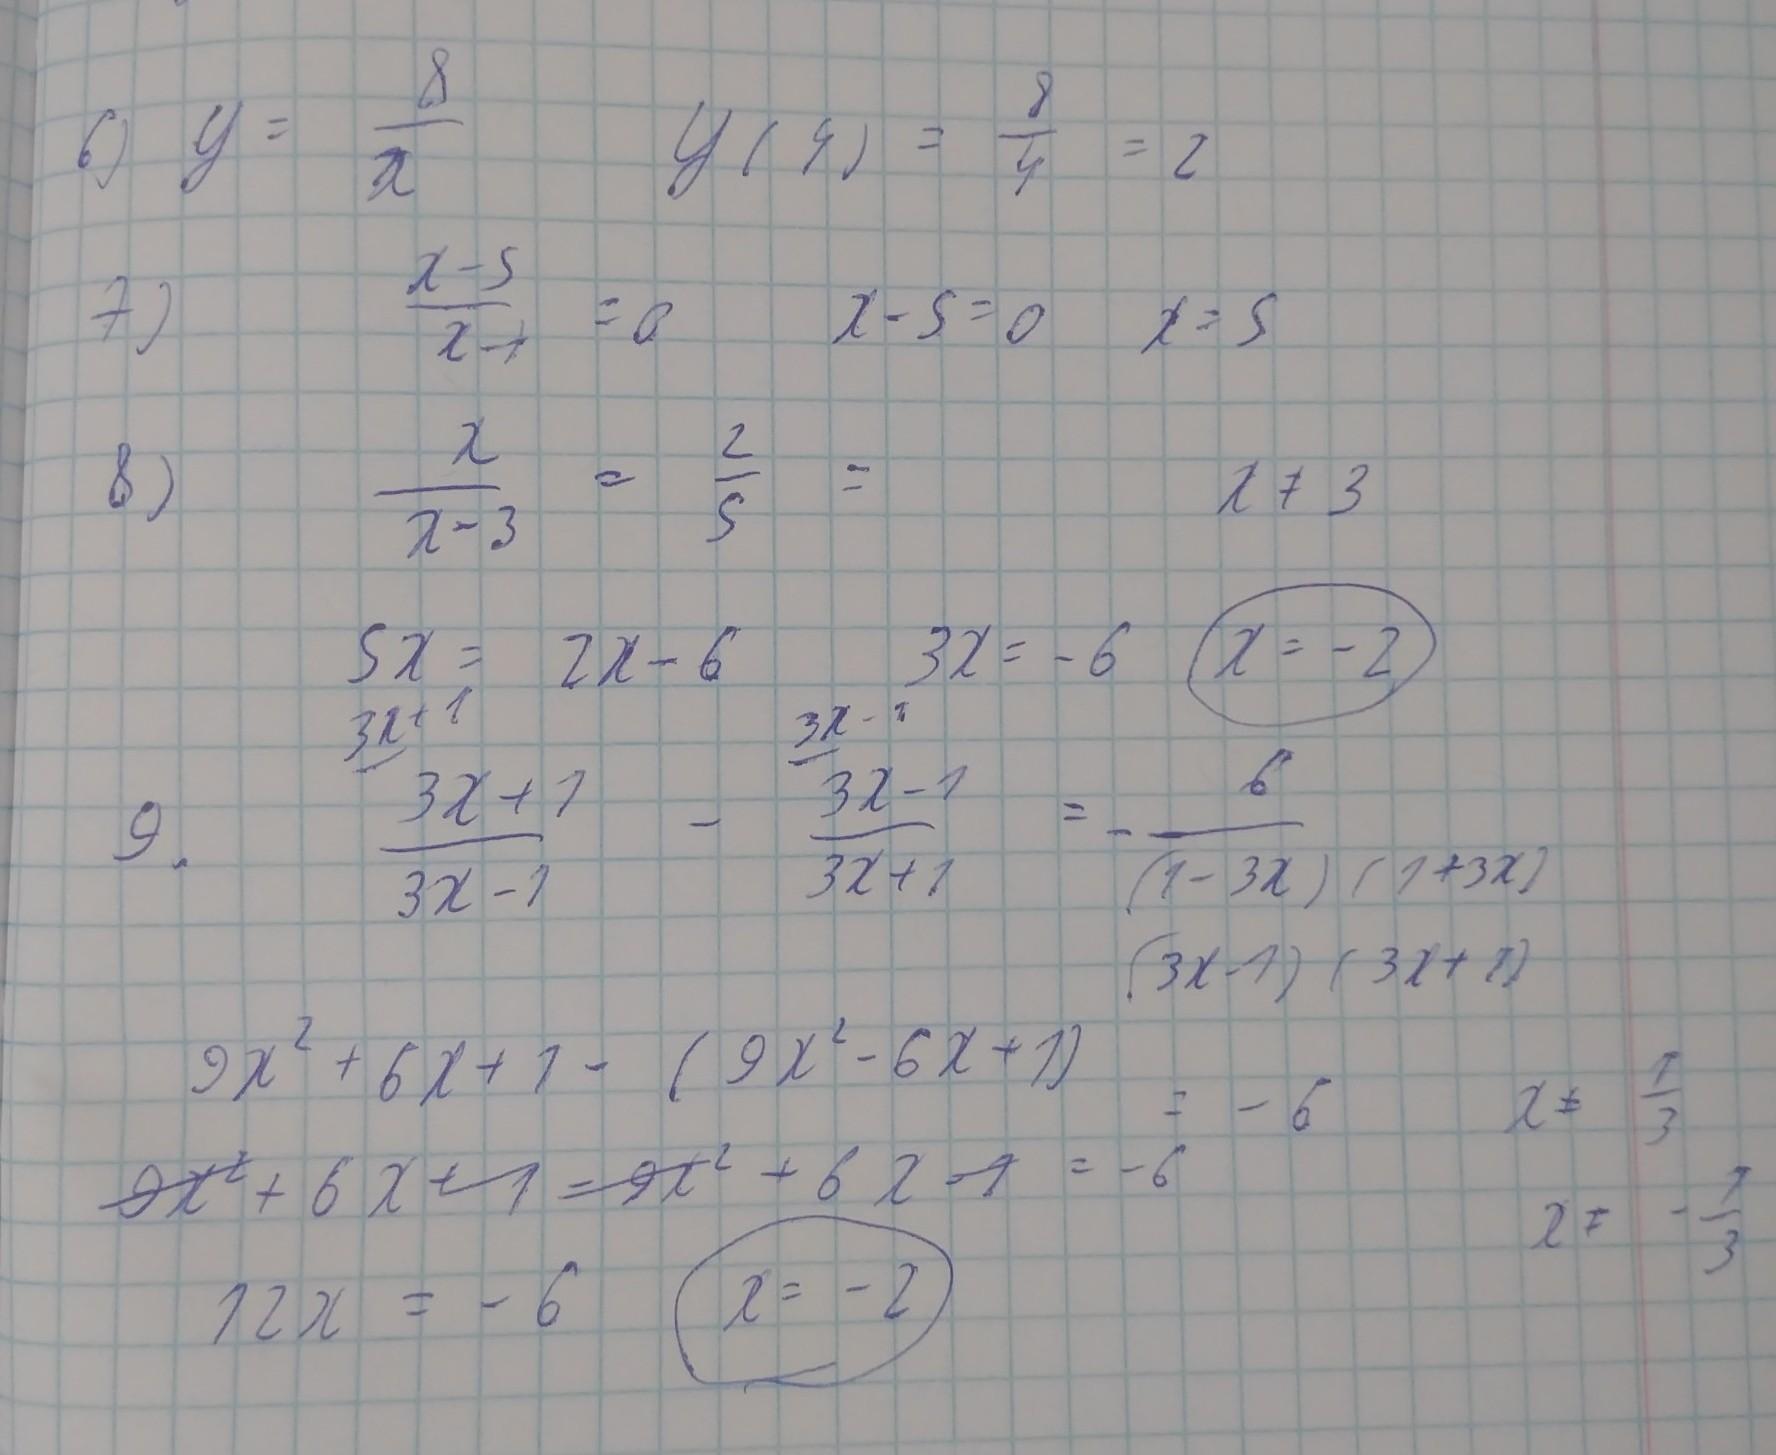 6) y = 8/x y(4) = 8/4 = 2
7) (x-5)/(x-1) = 0 x-5=0 x=5
8) x/(x-3) = 2/5 = x ≠ 3
5x = 2x-6 3x = -6 x = -2
3x+1 3x-1
9. (3x+1)/(3x-1) - (3x-1)/(3x+1) = - 6/((1-3x)(1+3x))
(3x-1)(3x+1)
9x² + 6x + 1 - (9x² - 6x + 1) = -6 x ≠ 1/3
9x² + 6x + 1 - 9x² + 6x - 1 = -6 x ≠ -1/3
12x = -6 x = -2